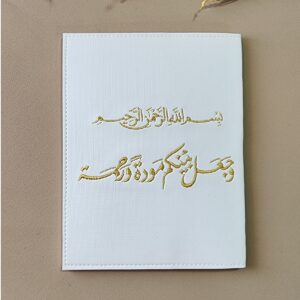 بسم الله الرحمن الرحيم
وجعل بينكم مودة ورحمة